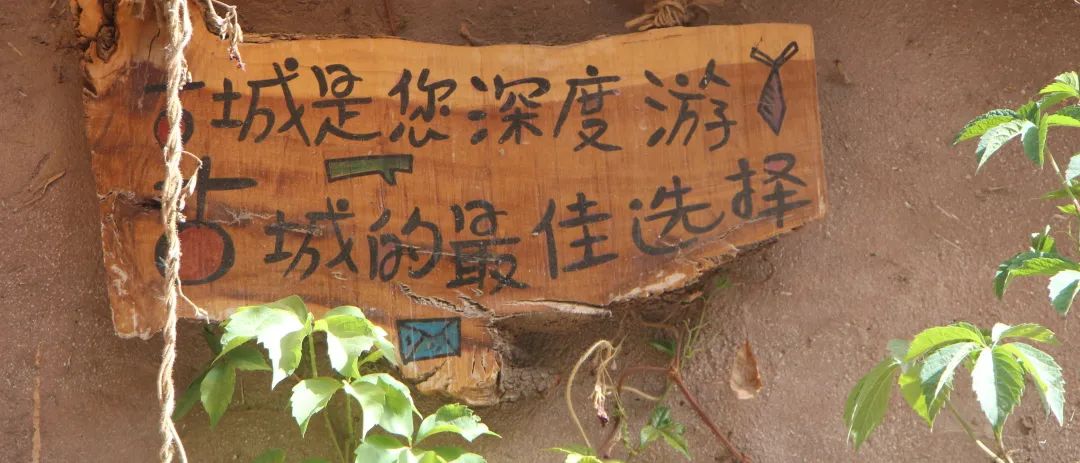 古城是您深度游
古城的最佳选择